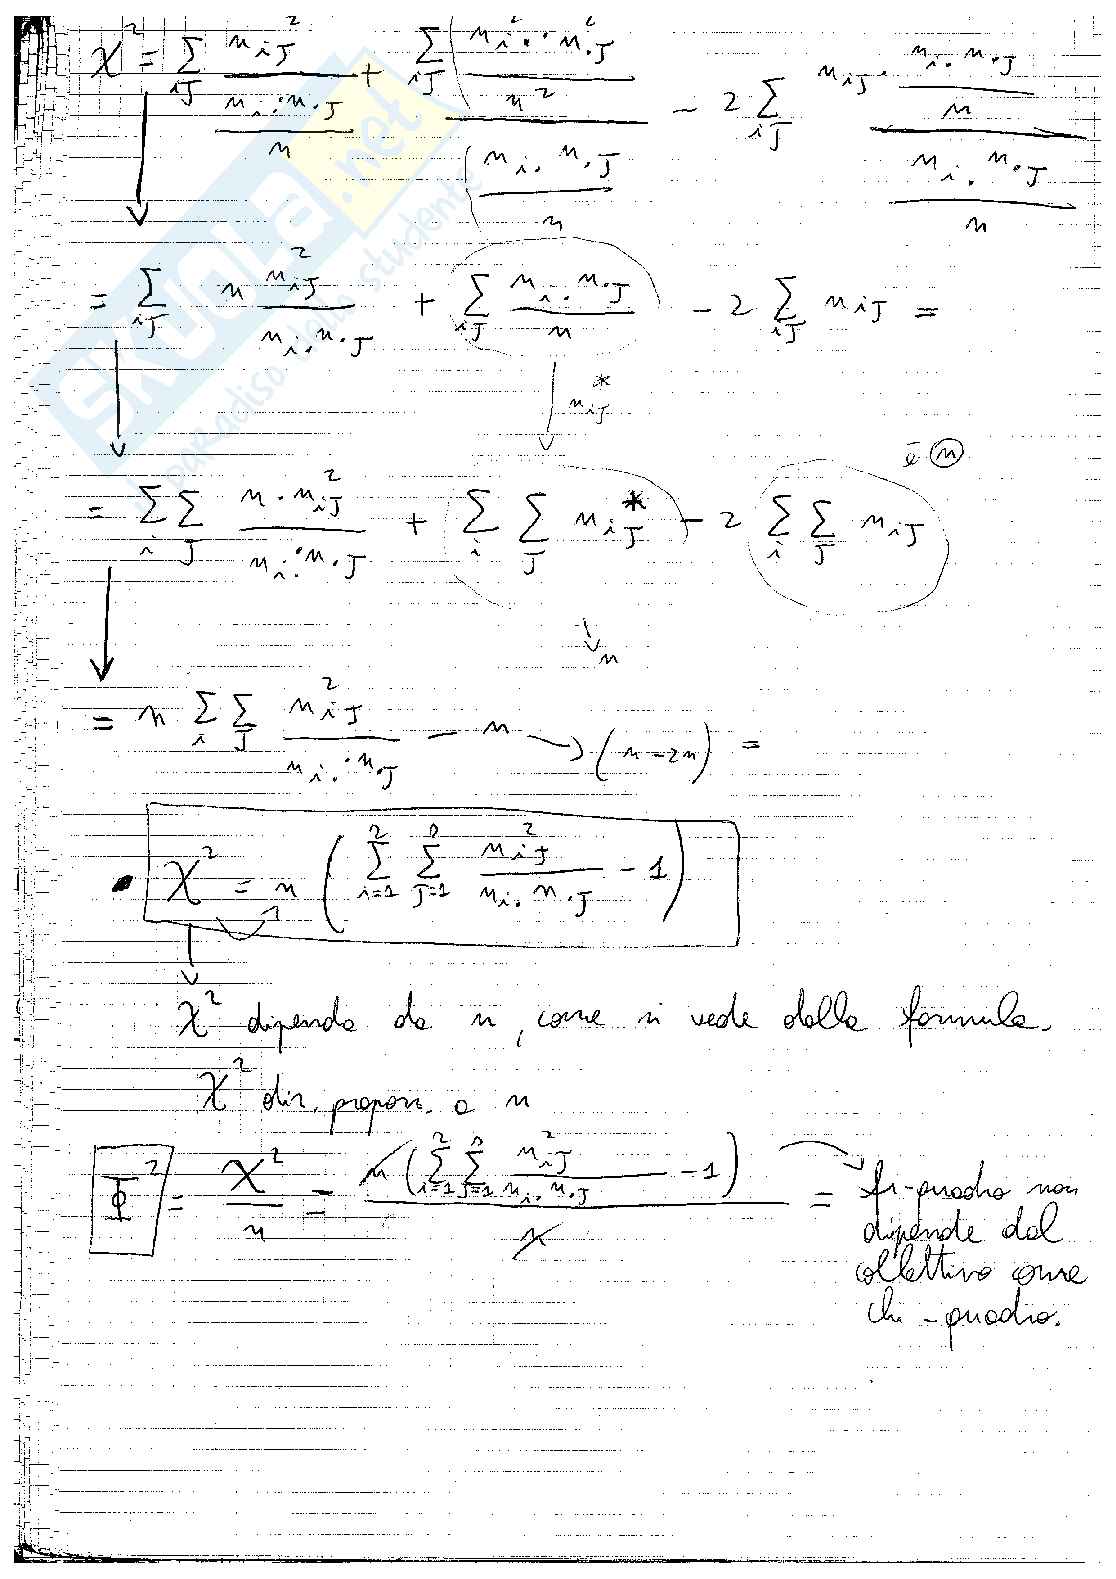 χ² = Σ_{iJ} n_{iJ}² / (n_{i.} · n_{.J} / n) + Σ_{iJ} (n_{i.}² · n_{.J}² / n²) / (n_{i.} n_{.J} / n) − 2 Σ_{iJ} (n_{iJ} · n_{i.} n_{.J} / n) / (n_{i.} n_{.J} / n)
= Σ_{iJ} n n_{iJ}² / (n_{i.} n_{.J}) + Σ_{iJ} n_{i.} n_{.J} / n − 2 Σ_{iJ} n_{iJ} =
n_{iJ}*
è n
= Σ_i Σ_J n · n_{iJ}² / (n_{i.} · n_{.J}) + Σ_i Σ_J n_{iJ}* − 2 Σ_i Σ_J n_{iJ}
n
= n Σ_i Σ_J n_{iJ}² / (n_{i.} · n_{.J}) − n → (n − 2n) =
χ² = n ( Σ_{i=1}^{r} Σ_{J=1}^{s} n_{iJ}² / (n_{i.} n_{.J}) − 1 )
χ² dipende da n, come si vede dalla formula.
χ² dir. propor. a n
Φ² = χ² / n = n ( Σ_{i=1}^{r} Σ_{J=1}^{s} n_{iJ}² / (n_{i.} n_{.J}) − 1 ) / n = fi-quadro non
dipende dal
collettivo come
chi-quadro.
SKUOLA.net
paradiso dello studente